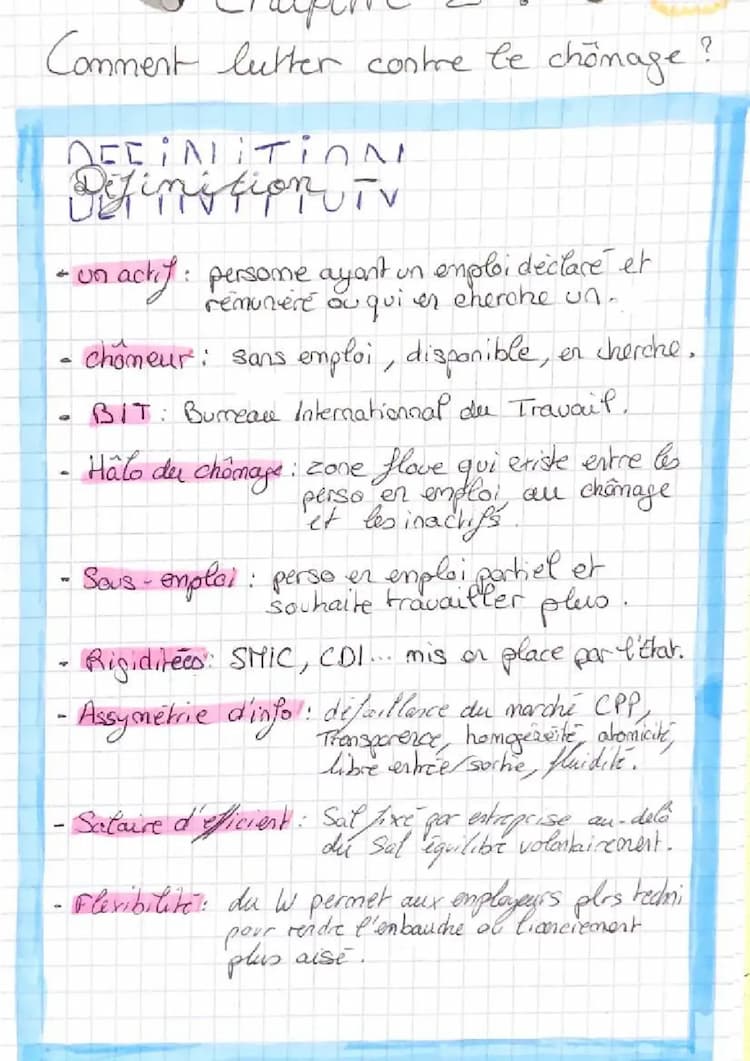 Chapitre 2 :
Comment lutter contre le chômage ?
DEFINITION
Définition
- un actif : personne ayant un emploi déclaré et
rémunéré ou qui en cherche un.
- chômeur : sans emploi, disponible, en cherche.
- BIT : Burreau Internationnal du Travail.
- Hâlo du chômage : zone floue qui existe entre les
perso en emploi, au chômage
et les inactifs.
- Sous-emploi : perso en emploi partiel et
souhaite travailler plus.
- Rigiditées : SMIC, CDI... mis en place par l'état.
- Assymétrie d'info : défaillance du marché CPP,
Transparence, homogénéité, atomicité,
libre entrée/sortie, fluidité.
- Salaire d'efficient : Sal fixé par entreprise au-delà
du Sal équilibre volontairement.
- Flexibilité : du W permet aux employeurs plrs techni
pour rendre l'embauche ou licenciement
plus aisé.